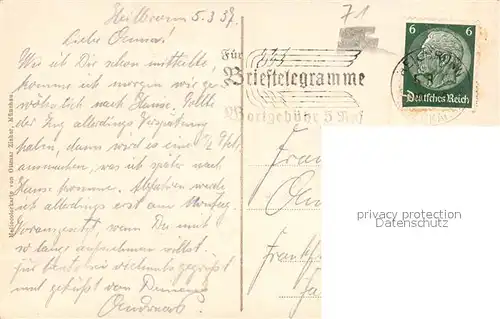 Heilbronn 5.3.37.
Liebe Oruna!
Wie ich Dir schon mitteilte
komme ich morgen wie ge-
wöhnlich nach Hause. Sollte
der Zug allerdings Verspätung
haben, dann wird es eine 1/2 Std.
ausmachen, was ich später nach
Hause komme. Abfahren werde
ich allerdings erst am Montag.
Vorausgesetzt, wenn Du mich
so lange aufnehmen willst.
Für heute sei vielmals gegrüßt
und geküßt von Deinem
71
Für
Brieftelegramme
Wortgebühr 5 Rpf
6 6
Deutsches Reich
Frau
Frankf
Malerpostkarte von Ottmar Zieher, München.
privacy protection
Datenschutz